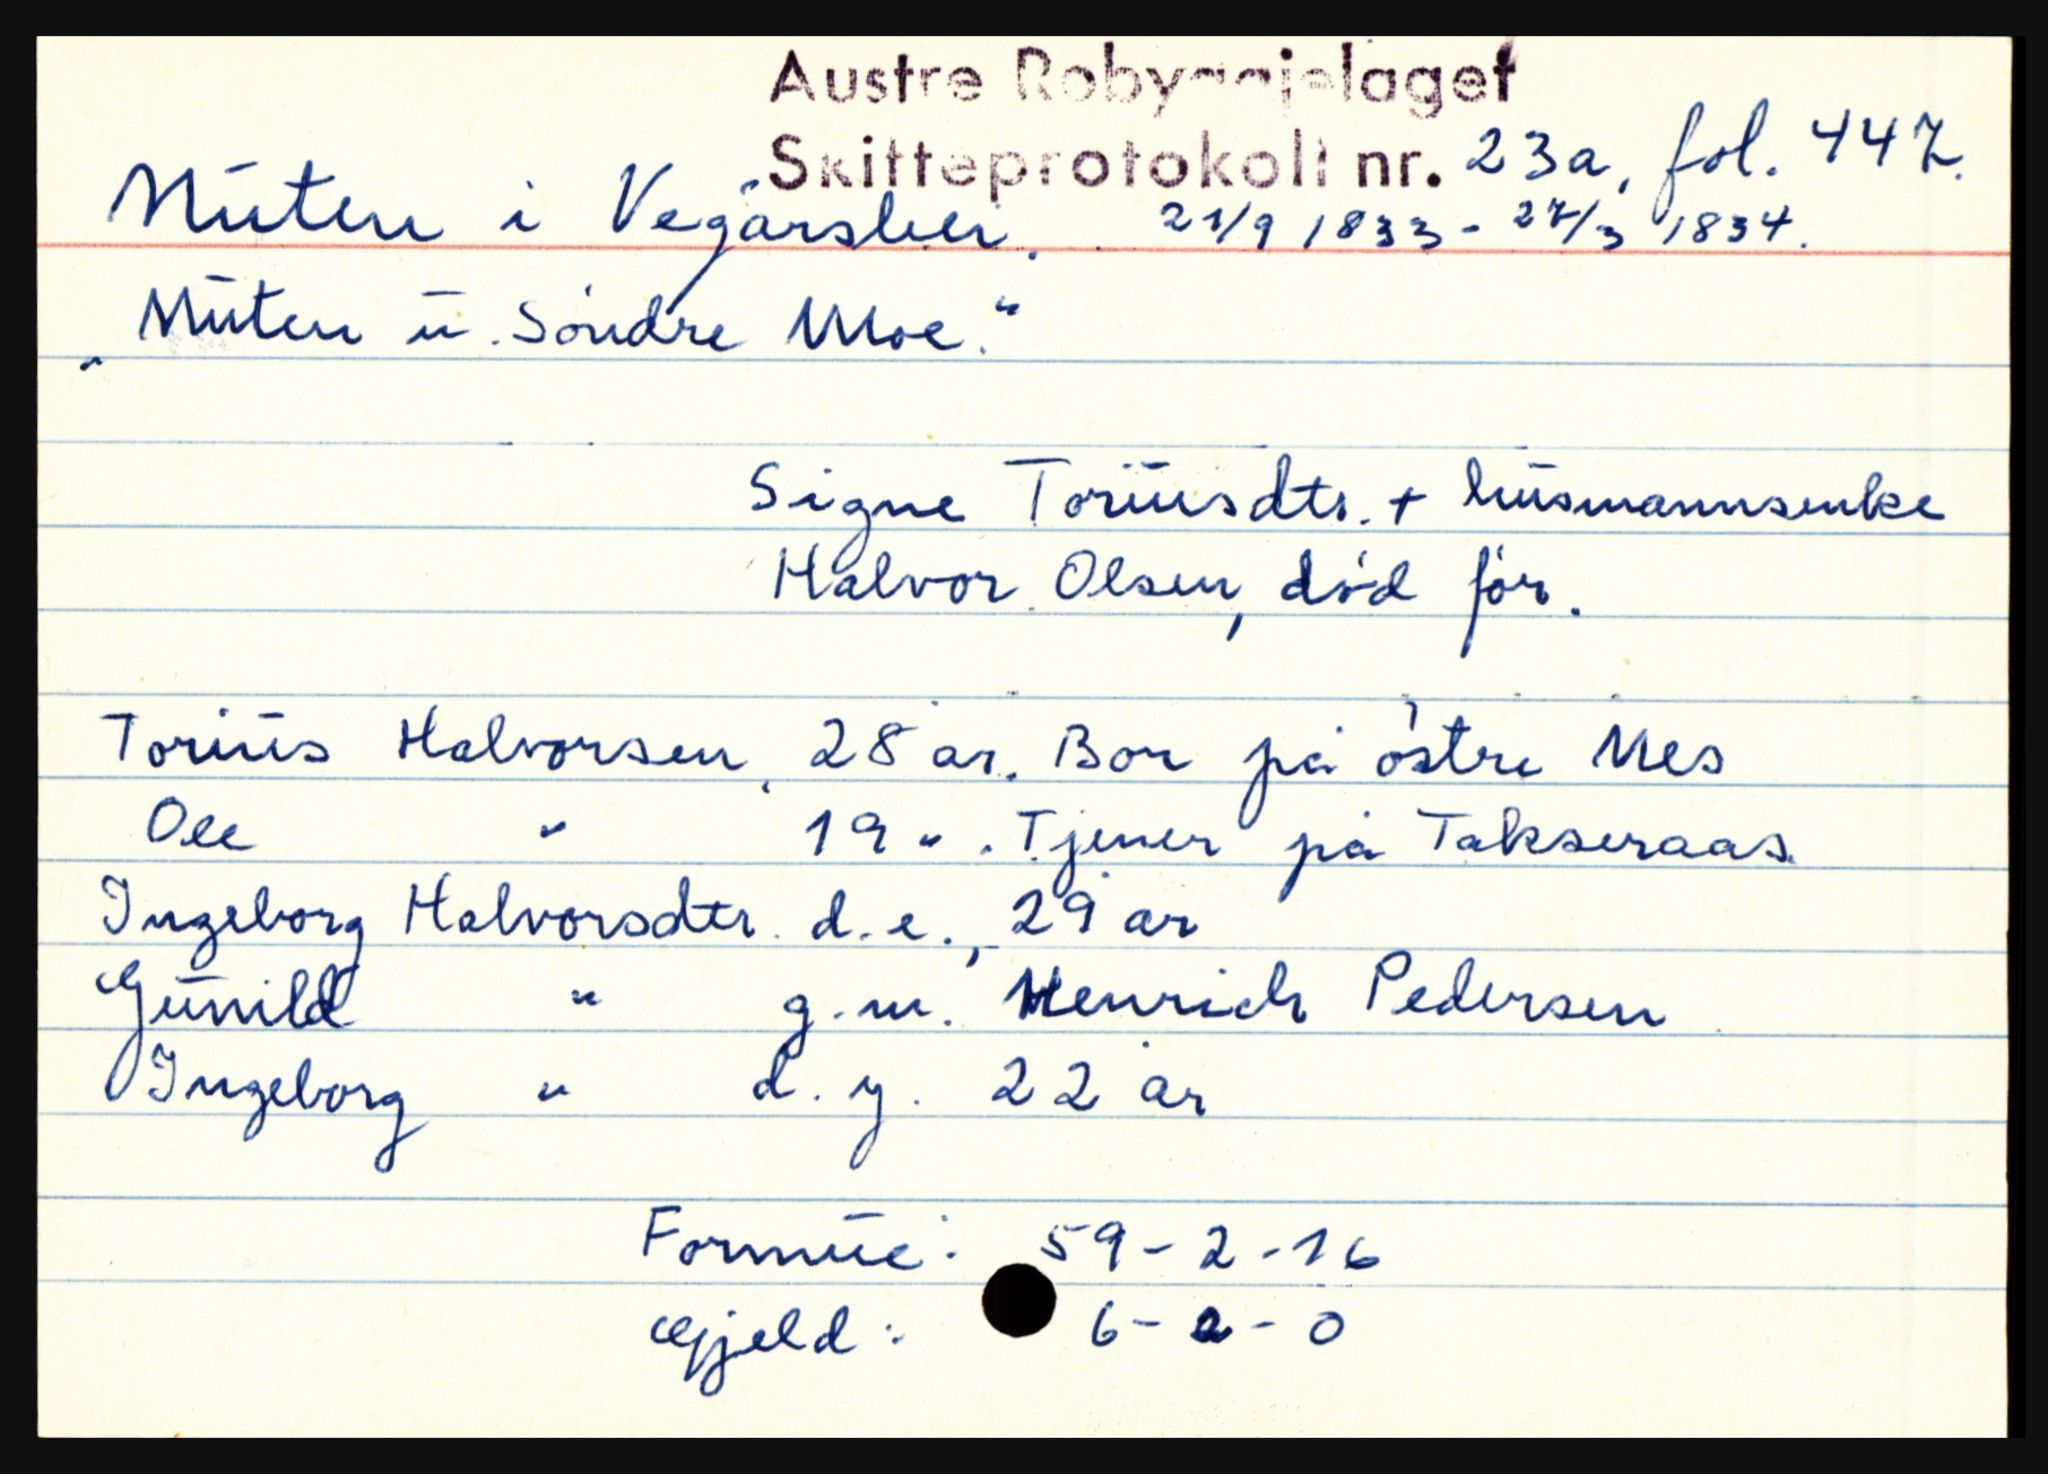 Austre Robyggjelaget
Skifteprotokoll nr. 23a, fol. 447.
Muten i Vegårshei. 21/9 1833 - 27/3 1834.
"Muten u. Söndre Moe."
Signe Toriusdtr. + husmannsenke
Halvor Olsen, död för.
Torius Halvorsen, 28 år. Bor på östre Nes
Ole " 19 ". Tjener på Takseraas.
Ingeborg Halvorsdtr. d.e., 29 år
Gunild " g.m. Henrich Pedersen
Ingeborg " d.y. 22 år
Formue: 59-2-16
Gjeld: 6-2-0